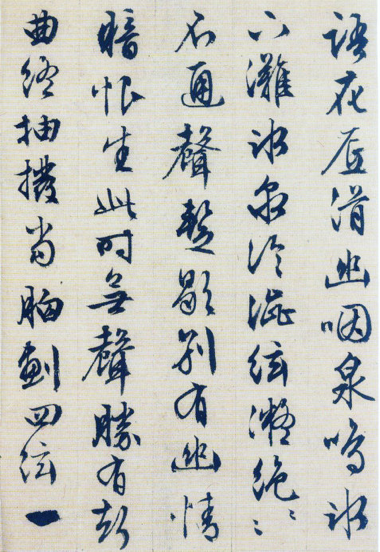 語花底滑幽咽泉鳴冰
下灘冰泉冷澁絃凝絕〻〻
不通聲暫歇別有幽情
暗恨生此时無聲勝有聲
曲終抽撥當胸劃四絃一